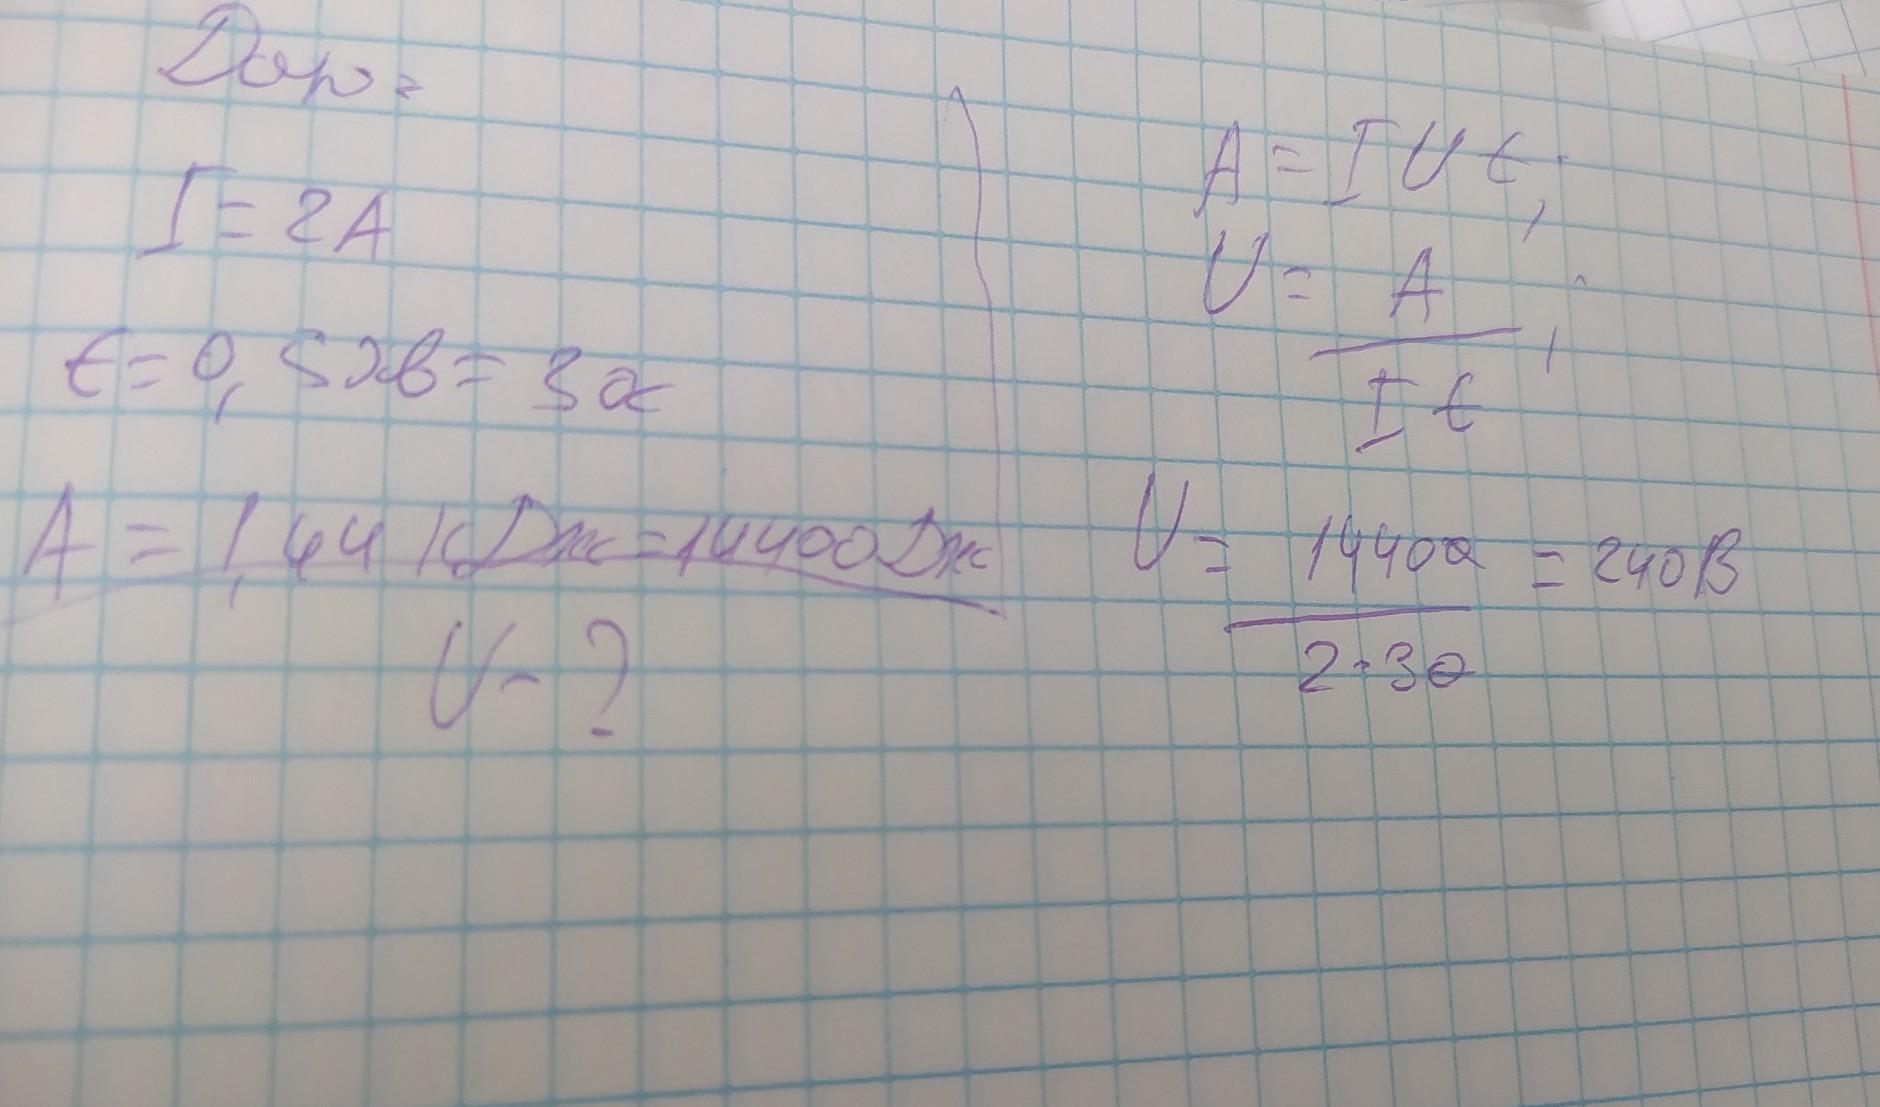 I = 2A
t = 0,5хв = 3с
A = 1,44 кДж = 14400Дж
U - ?
A = I U t,
U = A / I t,
U = 14400 / 2·30 = 240В